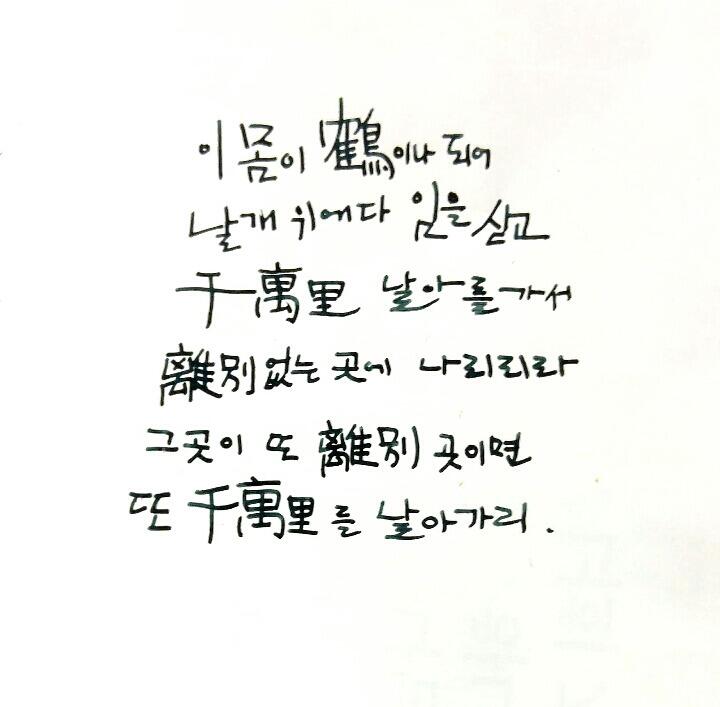 이 몸이 鶴이나 되어
날개 위에다 임을 싣고
千萬里 날아를 가서
離別없는 곳에 나리리라
그곳이 또 離別 곳이면
또 千萬里를 날아가리.